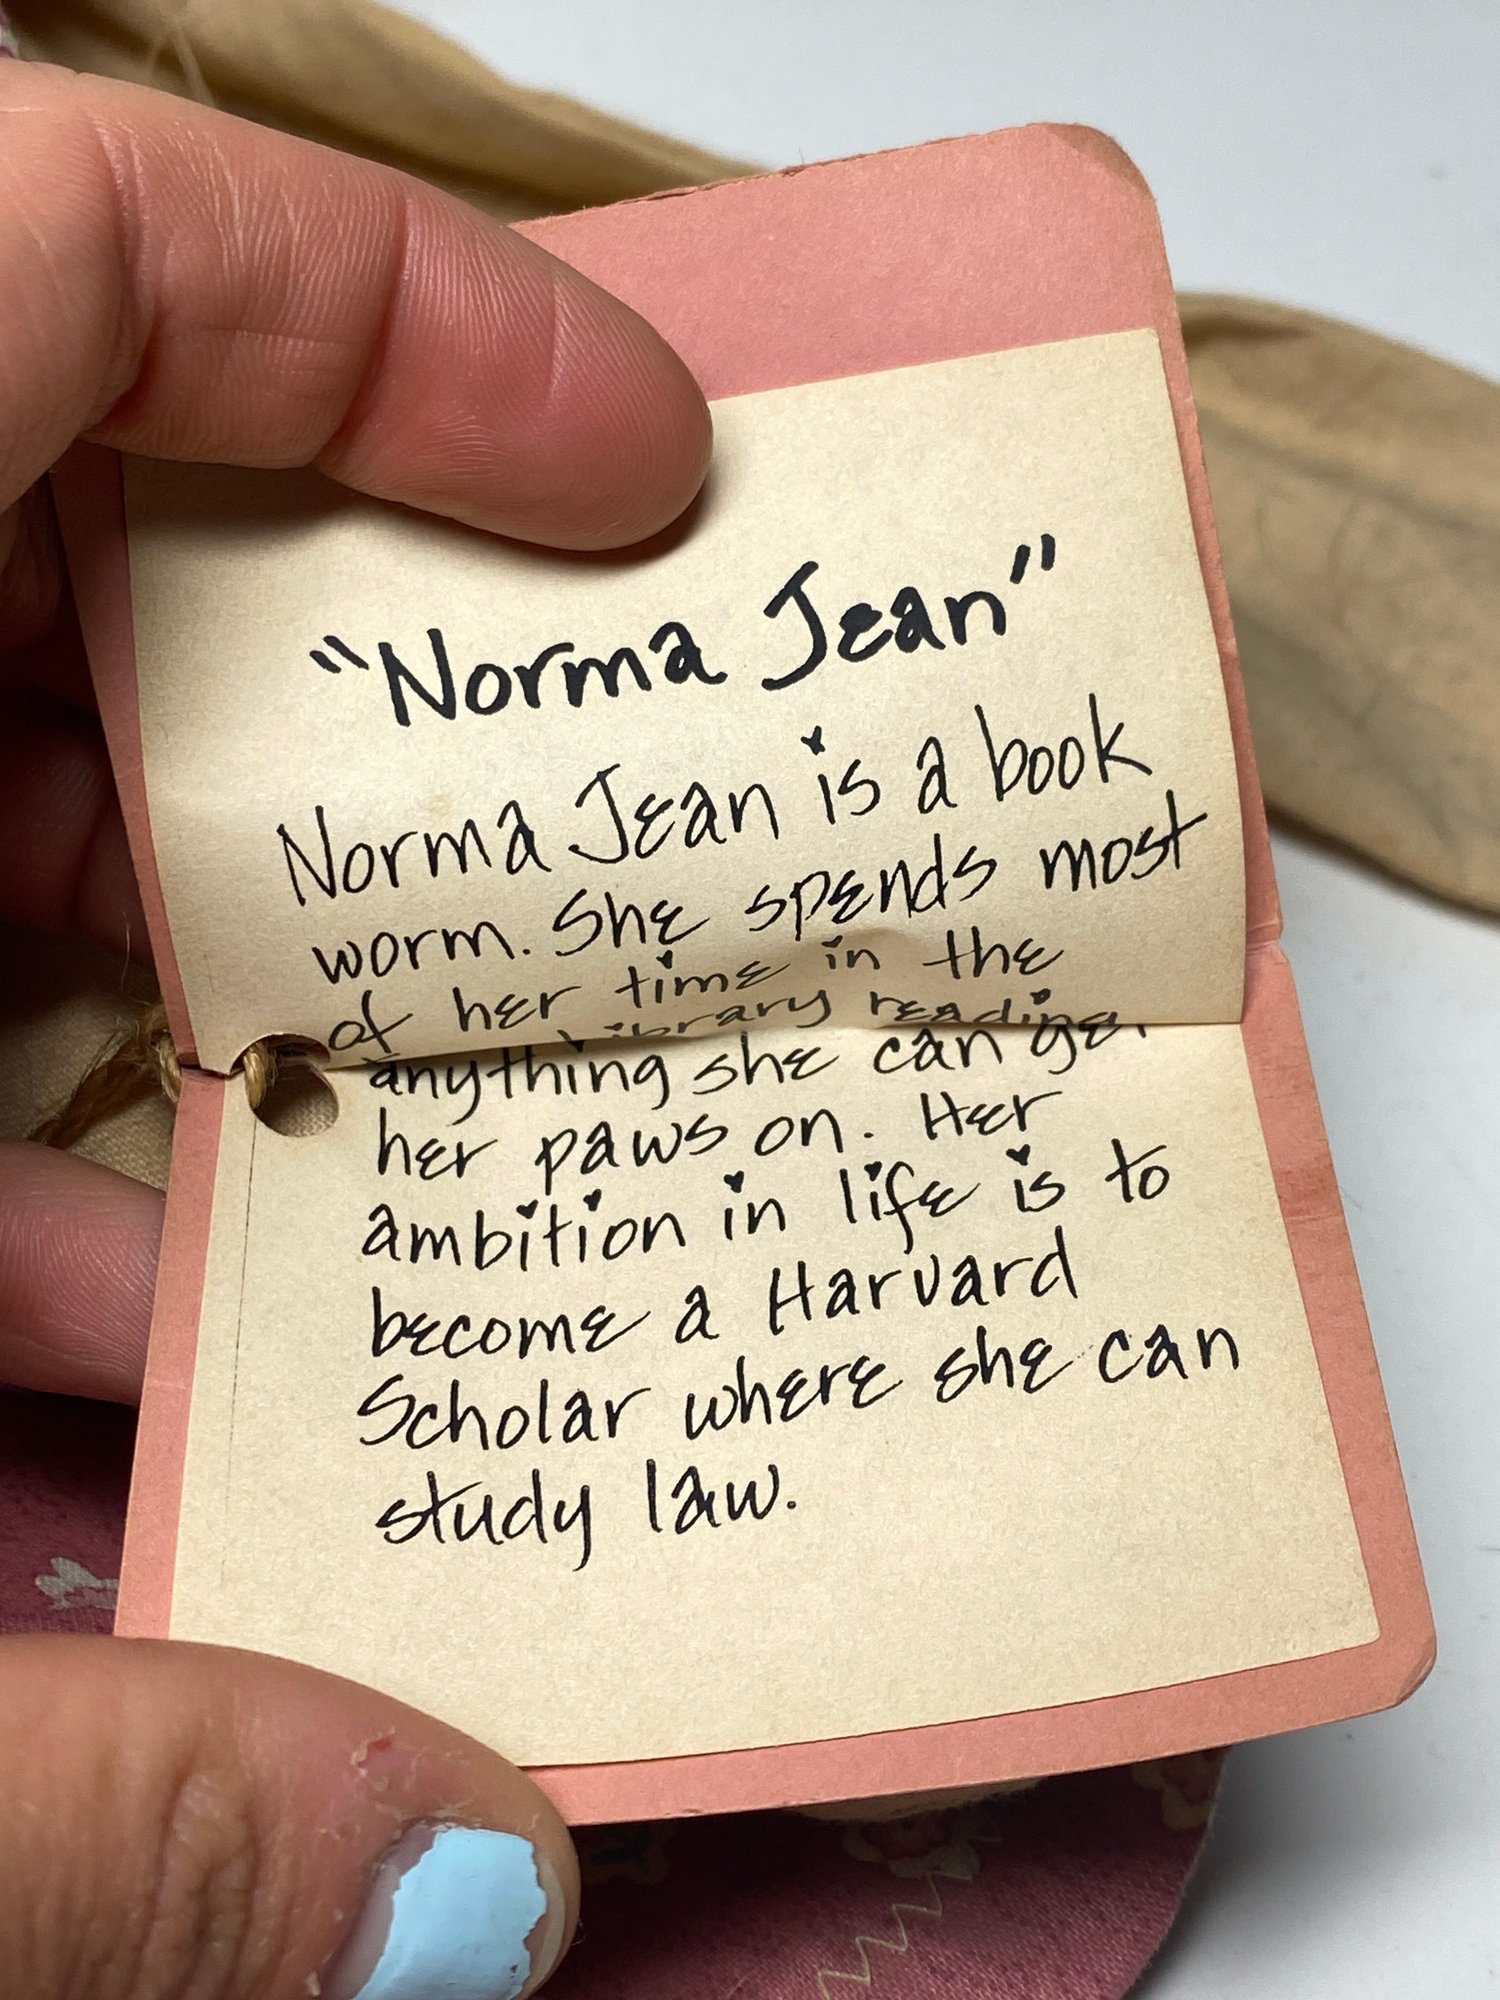 “Norma Jean”
Norma Jean is a book
worm. She spends most
of her time in the
library reading
anything she can get
her paws on. Her
ambition in life is to
become a Harvard
Scholar where she can
study law.